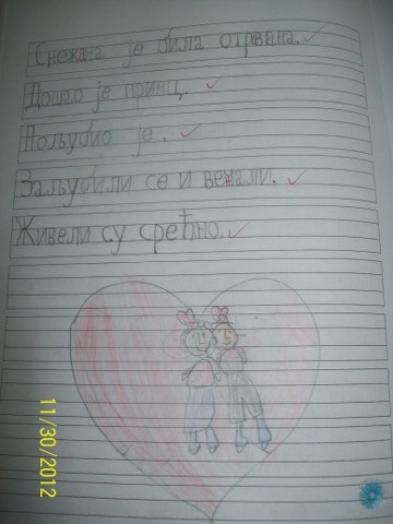 Снежана је била отрвана.
Дошао је принц.
Пољубио је.
Заљубили се и вежали.
Живели су срећно.
11/30/2012